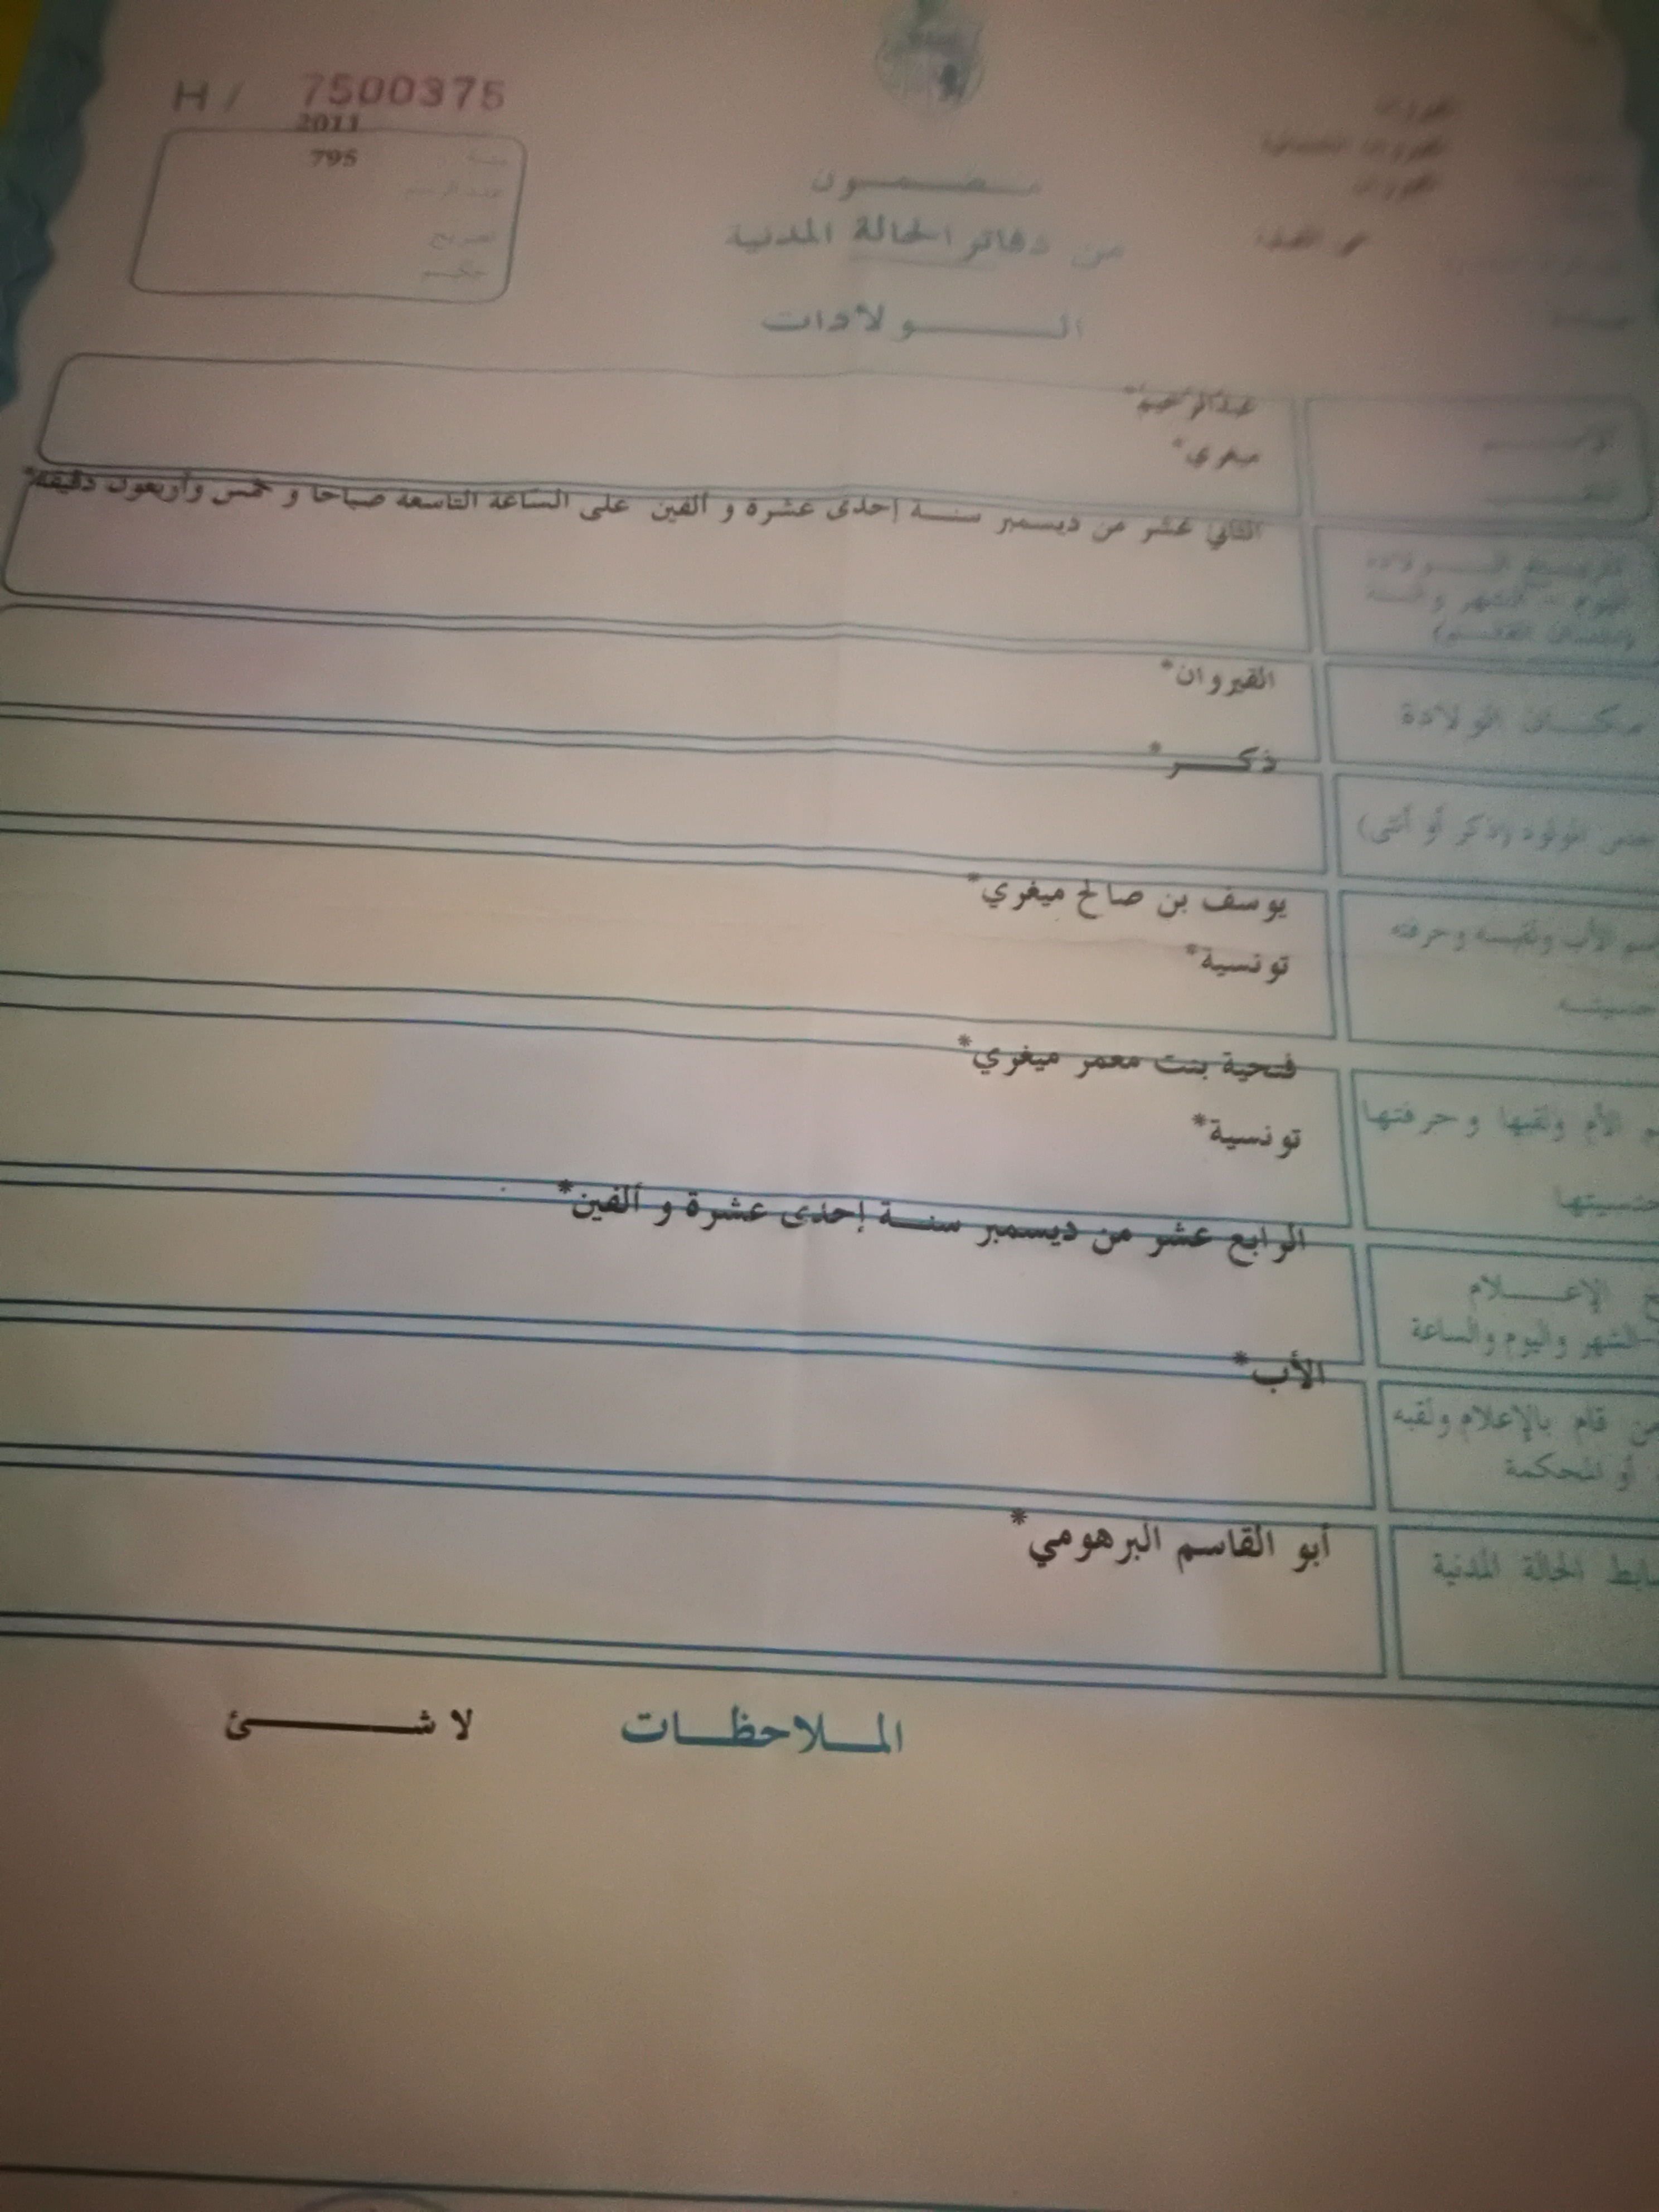 H / 7500375
2011
795
سنة
عدد الرسم
تصريح
حكم
القيروان
القيروان الشمالية
القيروان
مضمون
من دفاتر الحالة المدنية
الولادات
الاسم
عبدالرحيم*
اللقب
ميغري*
تاريخ الولادة
اليوم - الشهر والسنة
الثاني عشر من ديسمبر سنة إحدى عشرة و ألفين على الساعة التاسعة صباحا و خمس وأربعون دقيقة*
مكان الولادة
القيروان*
جنس المولود (ذكر أو أنثى)
ذكر*
اسم الأب ولقبه وحرفته
يوسف بن صالح ميغري*
جنسيته
تونسية*
م الأم ولقبها وحرفتها
فتحية بنت معمر ميغري*
جنسيتها
تونسية*
خ الإعلام
الشهر واليوم والساعة
الرابع عشر من ديسمبر سنة إحدى عشرة و ألفين*
من قام بالإعلام ولقبه
أو المحكمة
الأب*
ضابط الحالة المدنية
أبو القاسم البرهومي*
الملاحظات لا شئ